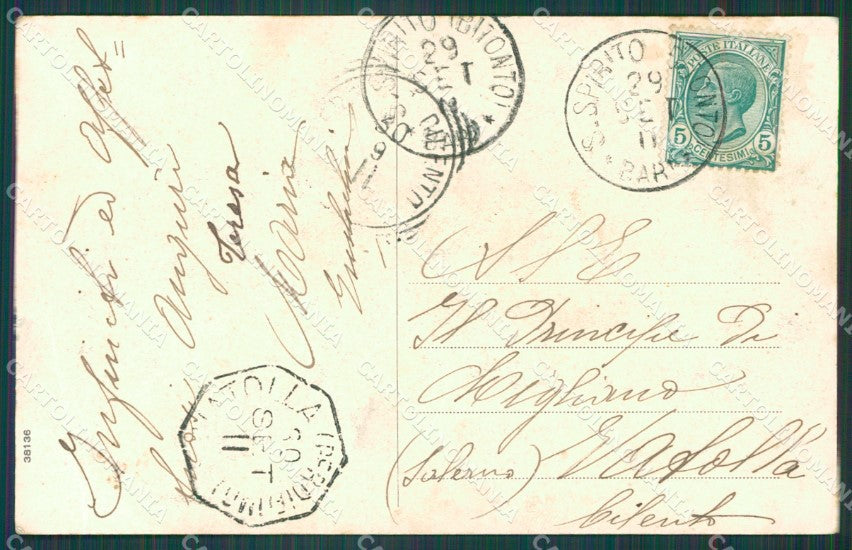 Infiniti ed affet=
Auguri
Teresa
Maria
38136
S. SPIRITO (BITONTO)
29
S. SPIRITO BITONTO
29
11
* BARI *
POSTE ITALIANE
5 5
CENTESIMI
VATOLLA (PERDIFUMO)
30
SET
11
A S E
Il Principe Di
Migliano
(Salerno) Vatolla
Cilento
CARTOLINOMANIA